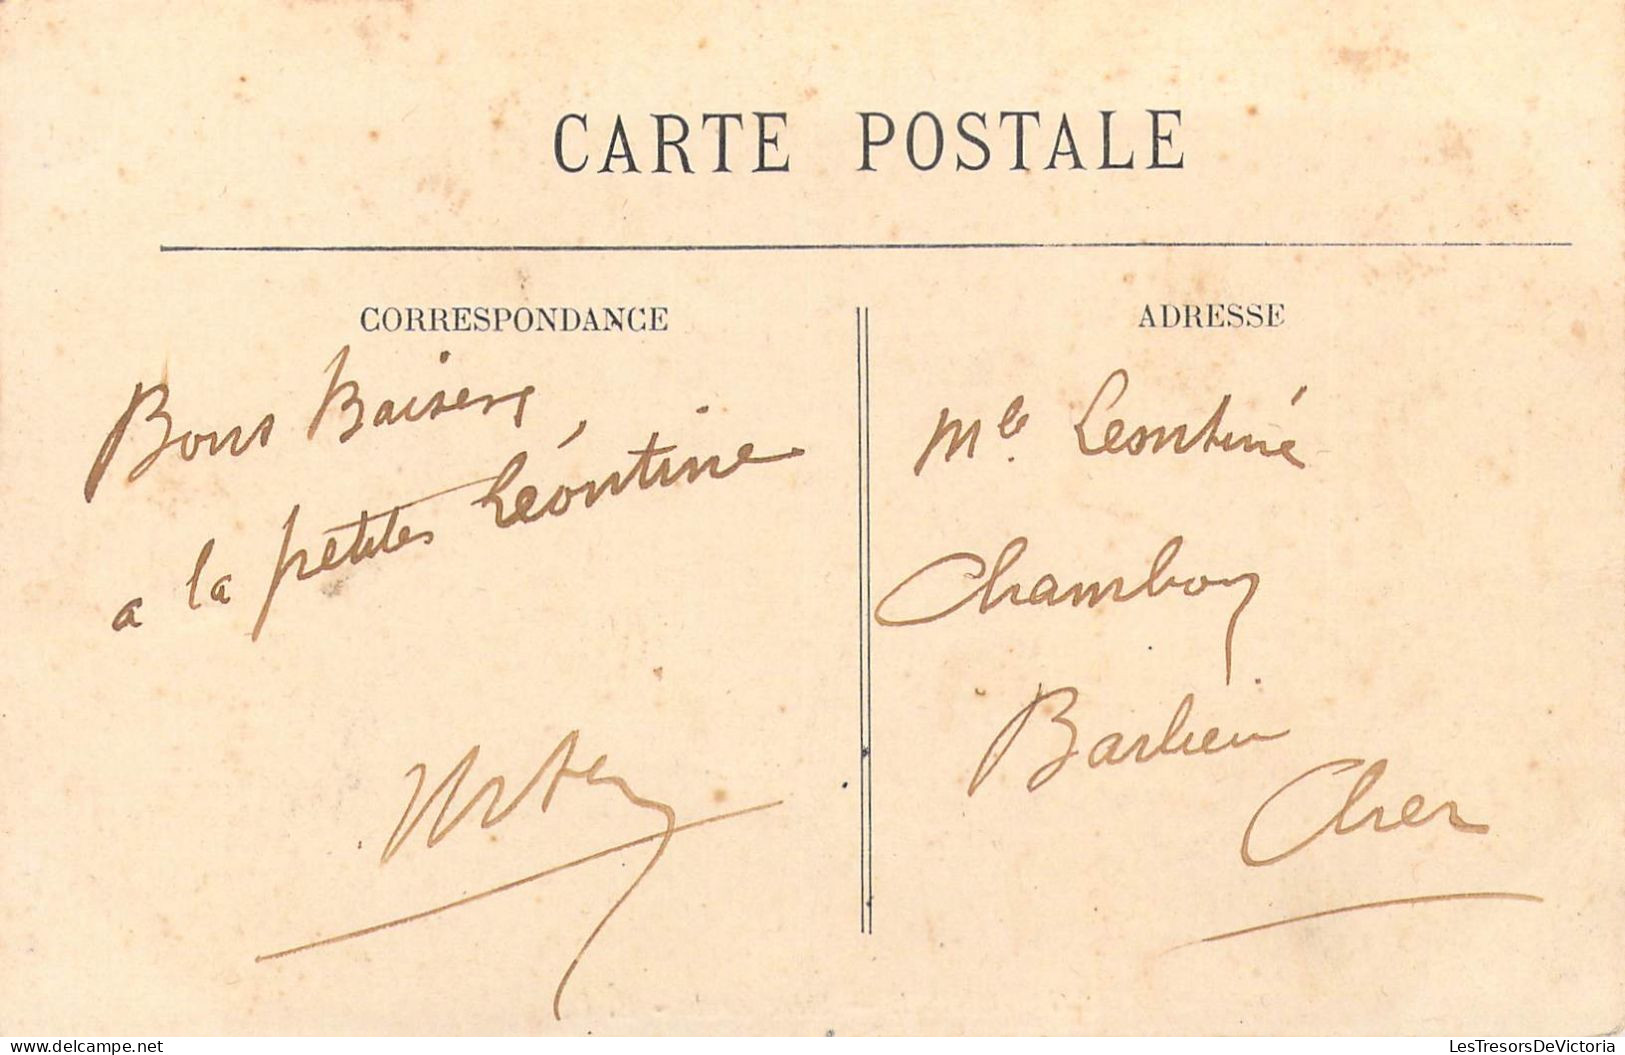 CARTE POSTALE
CORRESPONDANCE
Bons Baisers
a la petites Léontine
ADRESSE
Mle Leontine
Chambon
Barlieu
Cher
LesTresorsDeVictoria